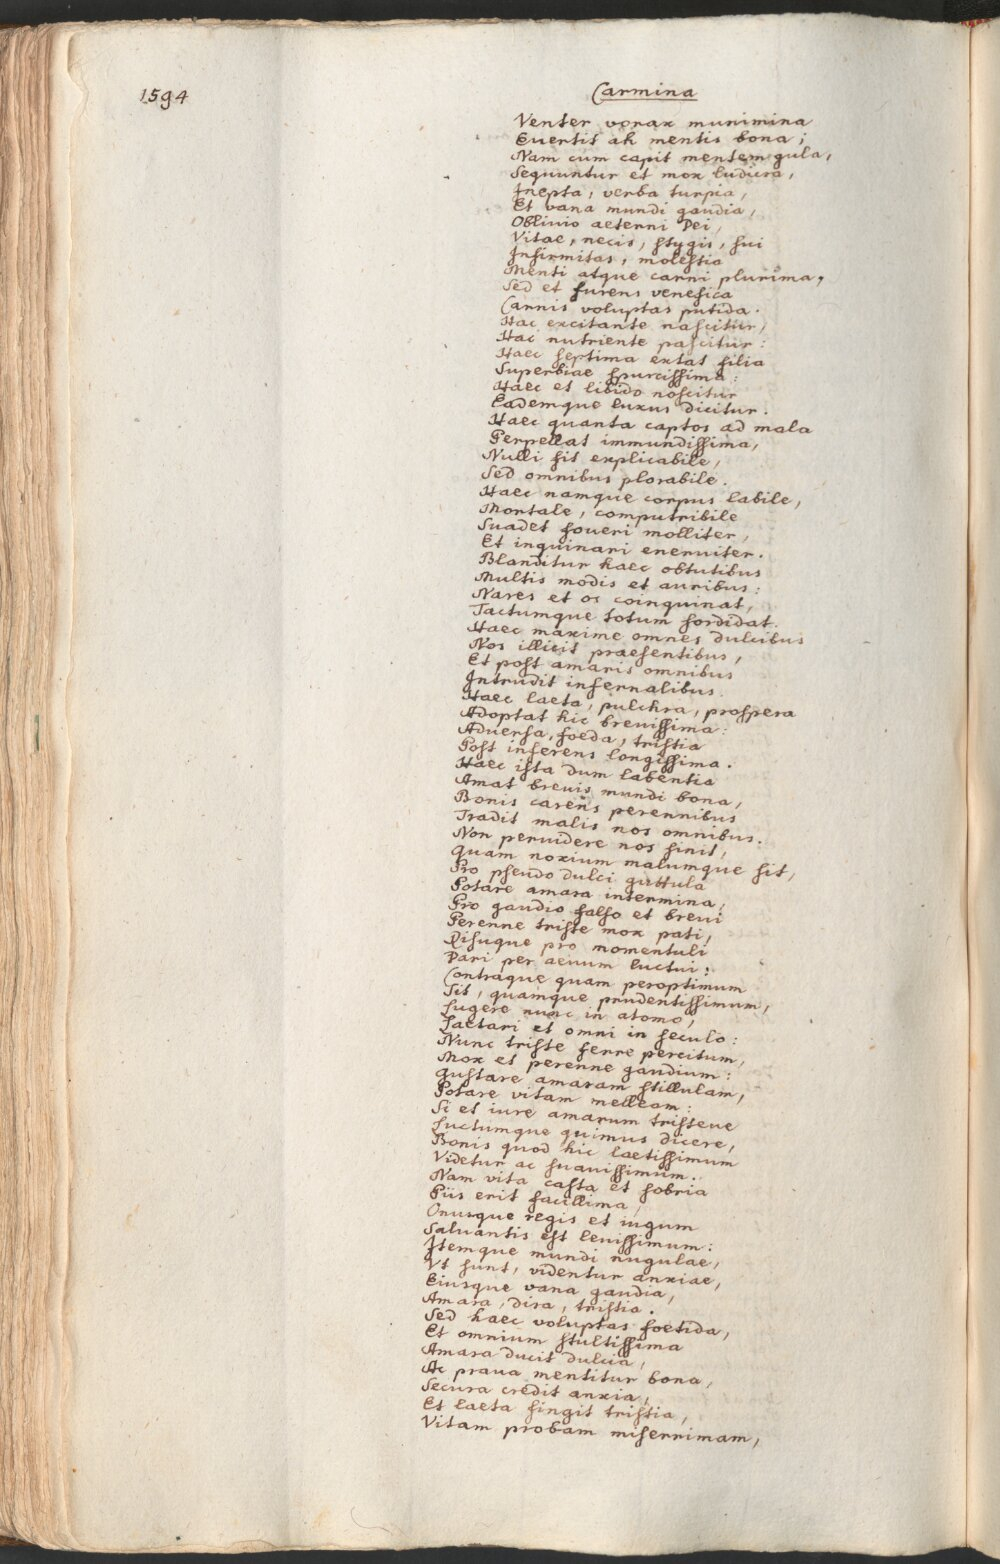 1594
Carmina
Venter vorax munimina
Euertit ah mentis bona;
Nam cum capit mentem gula,
Sequuntur et mox ludicra,
Inepta, verba turpia,
Et vana mundi gaudia,
Obliuio aeterni Dei,
Vitae, necis, stygis, sui
Infirmitas, molestia
Menti atque carni plurima,
Sed et furens venefica
Carnis voluptas putida.
Hac excitante nascitur,
Hac nutriente pascitur:
Haec septima extat filia
Superbiae spurcissima:
Haec et libido noscitur
Eademque luxus dicitur.
Haec quanta captos ad mala
Perpellat immundissima,
Nulli sit explicabile,
Sed omnibus plorabile.
Haec namque corpus labile,
Mortale, computribile
Suadet foueri molliter,
Et inquinari eneruiter.
Blanditur haec obtutibus
Multis modis et auribus:
Nares et os coinquinat,
Tactumque totum sordidat.
Haec maxime omnes dulcibus
Nos illicit praesentibus,
Et post amaris omnibus
Intrudit infernalibus.
Haec laeta, pulchra, prospera
Adoptat hic breuissima:
Aduersa, foeda, tristia
Post inferens longissima.
Haec ista dum labentia
Amat breuis mundi bona,
Bonis carens perennibus
Tradit malis nos omnibus.
Non peruidere nos sinit,
Quam noxium malumque sit,
Pro pseudo dulci guttula
Potare amara intermina,
Pro gaudio falso et breui
Perenne triste mox pati,
Risuque pro momentuli
Dari per aeuum luctui:
Contraque quam peroptimum
Sit, quamque prudentissimum,
Lugere nunc in atomo,
Laetari et omni in seculo:
Nunc triste ferre percitum,
Mox et perenne gaudium:
Gustare amaram stillulam,
Potare vitam melleam:
Si et iure amarum tristeue
Luctumque quimus dicere,
Bonis quod hic laetissimum
Videtur ac suauissimum.
Nam vita casta et sobria
Piis erit facillima,
Onusque regis et iugum
Saluantis est leuissimum:
Itemque mundi nugulae,
Vt sunt, videntur anxiae,
Eiusque vana gaudia,
Amara, dira, tristia.
Sed haec voluptas foetida,
Et omnium stultissima
Amara ducit dulcia,
Ac praua mentitur bona,
Secura credit anxia,
Et laeta fingit tristia,
Vitam probam miserrimam,